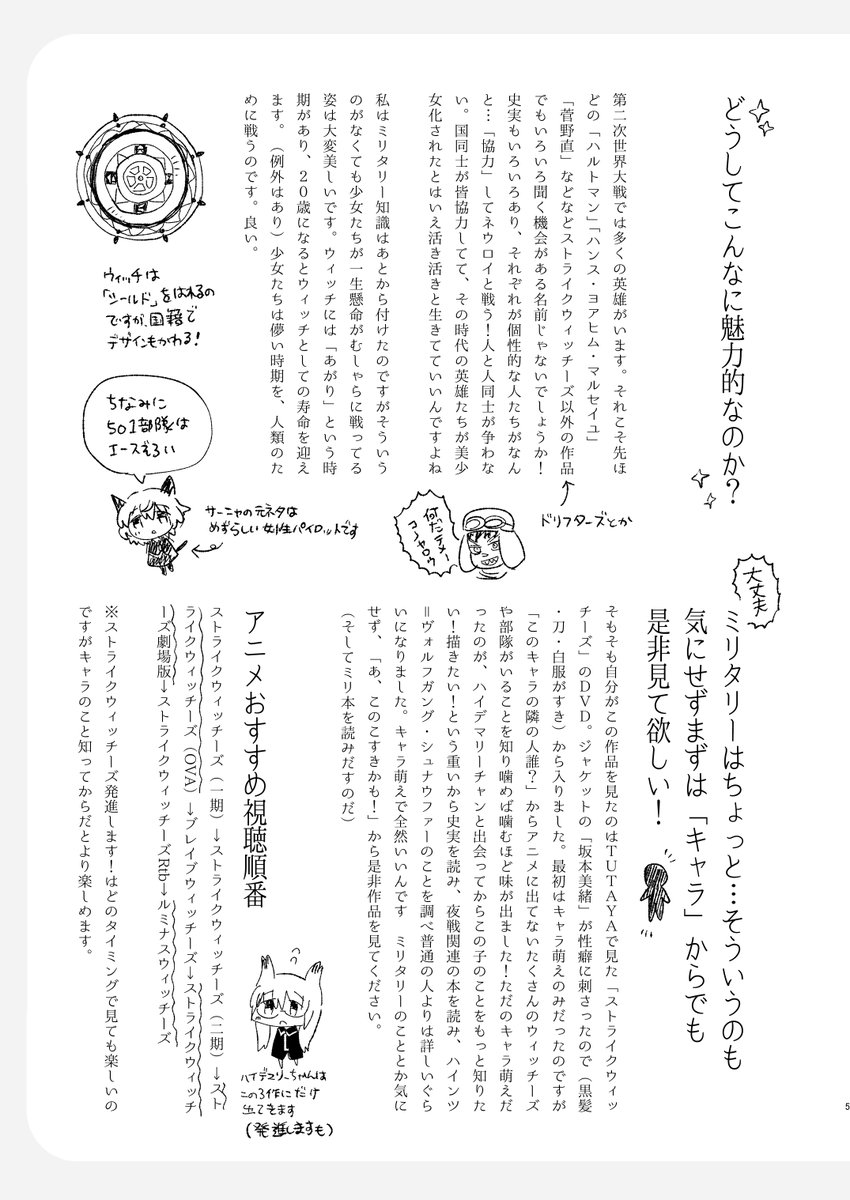 どうしてこんなに魅力的なのか?
第二次世界大戦では多くの英雄がいます。それこそ先ほ
どの「ハルトマン」「ハンス・ヨアヒム・マルセイユ」
「菅野直」などなどストライクウィッチーズ以外の作品
でもいろいろ聞く機会がある名前じゃないでしょうか!
史実もいろいろあり、それぞれが個性的な人たちがなん
と…「協力」してネウロイと戦う!人と人同士が争わな
い。国同士が皆協力してて、その時代の英雄たちが美少
女化されたとはいえ活き活きと生きてていいんですよね
ドリフターズとか
何だテメー
コノヤロウ
私はミリタリー知識はあとから付けたのですがそういう
のがなくても少女たちが一生懸命がむしゃらに戦ってる
姿は大変美しいです。ウィッチには「あがり」という時
期があり、20歳になるとウィッチとしての寿命を迎え
ます。(例外はあり)少女たちは儚い時期を、人類のた
めに戦うのです。良い。
ウィッチは
「シールド」をはれるの
ですが、国籍で
デザインもかわる!
ちなみに
501部隊は
エースぞろい
サーニャの元ネタは
めずらしい女性パイロットです
大丈夫
ミリタリーはちょっと…そういうのも
気にせずまずは「キャラ」からでも
是非見て欲しい!
そもそも自分がこの作品を見たのはTUTAYAで見た「ストライクウィッ
チーズ」のDVD。ジャケットの「坂本美緒」が性癖に刺さったので(黒髪
・刀・白服がすき)から入りました。最初はキャラ萌えのみだったのですが
「このキャラの隣の人誰?」からアニメに出てないたくさんのウィッチーズ
や部隊がいることを知り噛めば噛むほど味が出ました!ただのキャラ萌えだ
ったのが、ハイデマリーチャンと出会ってからこの子のことをもっと知りた
い!描きたい!という重いから史実を読み、夜戦関連の本を読み、ハインツ
=ヴォルフガング・シュナウファーのことを調べ普通の人よりは詳しいぐら
いになりました。キャラ萌えで全然いいんです ミリタリーのこととか気に
せず、「あ、このこすきかも!」から是非作品を見てください。
(そしてミリ本を読みだすのだ)
アニメおすすめ視聴順番
ストライクウィッチーズ(一期)→ストライクウィッチーズ(二期)→スト
ライクウィッチーズ(OVA)→ブレイブウィッチーズ→ストライクウィッチ
ーズ劇場版→ストライクウィッチーズRtb→ルミナスウィッチーズ
ハイデマリーちゃんは
この3作にだけ
出てきます
(発進しますも)
※ストライクウィッチーズ発進します!はどのタイミングで見ても楽しいの
ですがキャラのこと知ってからだとより楽しめます。
5